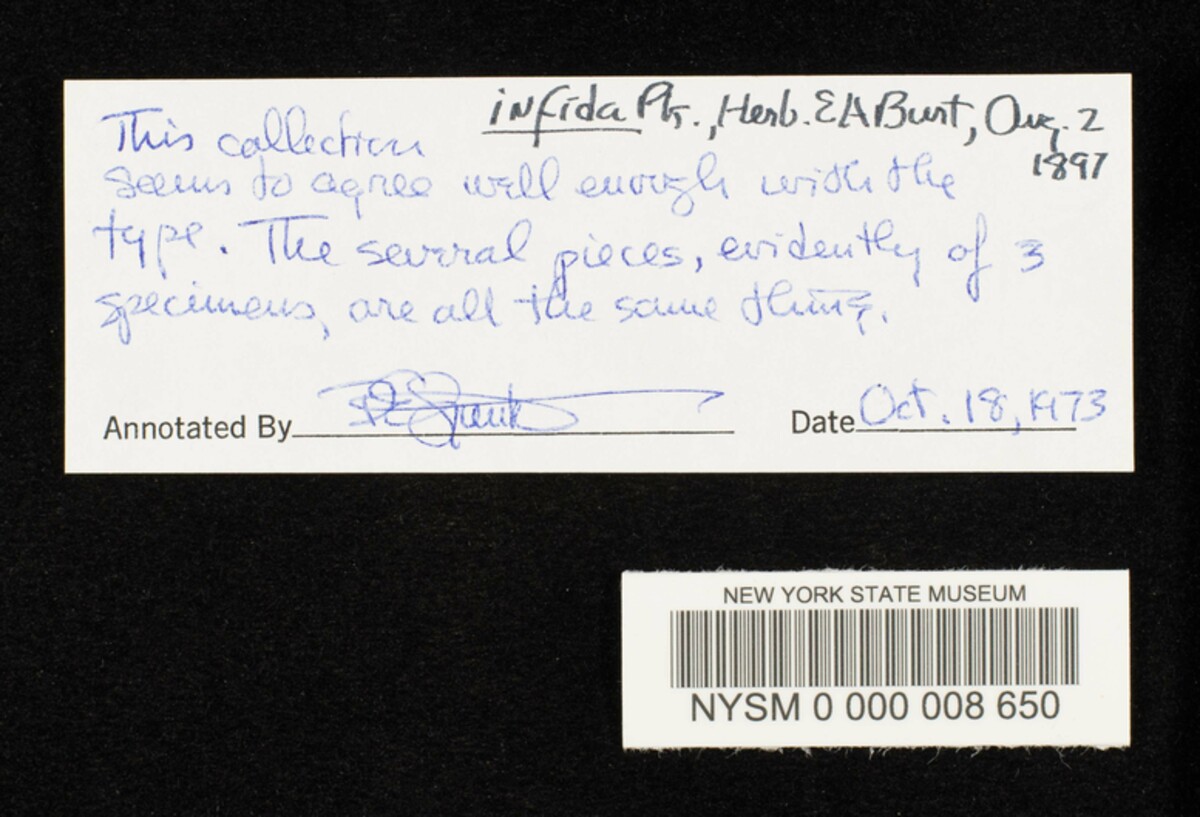 infida Pk., Herb. EABurt, Aug. 2
1897
This collection
seems to agree well enough with the
type. The several pieces, evidently of 3
specimens, are all the same thing.
Annotated By
Date Oct. 18, 1973
NEW YORK STATE MUSEUM
NYSM 0 000 008 650